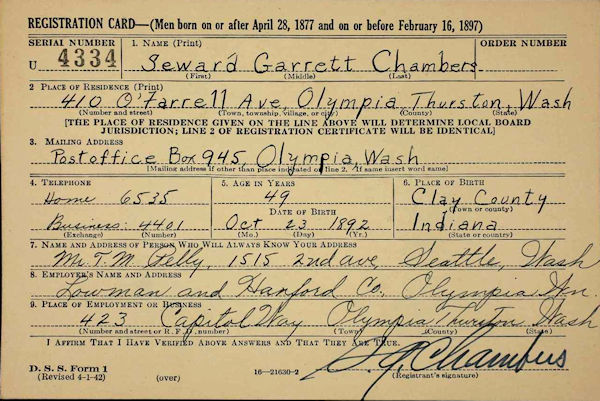 REGISTRATION CARD—(Men born on or after April 28, 1877 and on or before February 16, 1897)
SERIAL NUMBER
1. NAME (Print)
ORDER NUMBER
U 4334
Seward Garrett Chambers
(First) (Middle) (Last)
2 PLACE OF RESIDENCE (Print)
410 O'Farrell Ave, Olympia Thurston, Wash
(Number and street) (Town, township, village, or city) (County) (State)
[THE PLACE OF RESIDENCE GIVEN ON THE LINE ABOVE WILL DETERMINE LOCAL BOARD
JURISDICTION; LINE 2 OF REGISTRATION CERTIFICATE WILL BE IDENTICAL]
3. MAILING ADDRESS
Postoffice Box 945, Olympia, Wash
[Mailing address if other than place indicated on line 2. If same insert word same]
4. TELEPHONE
5. AGE IN YEARS
6. PLACE OF BIRTH
Home 6535
49
Clay County
(Town or county)
DATE OF BIRTH
Business: 4401
Oct 23 1892
Indiana
(Exchange) (Number)
(Mo.) (Day) (Yr.)
(State or country)
7. NAME AND ADDRESS OF PERSON WHO WILL ALWAYS KNOW YOUR ADDRESS
Mr. T. M. Pelly, 1515 2nd ave Seattle, Wash
8. EMPLOYER'S NAME AND ADDRESS
Lowman and Hanford Co. Olympia Wn.
9. PLACE OF EMPLOYMENT OR BUSINESS
423 Capitol Way Olympia Thurston Wash
(Number and street or R. F. D. number) (Town) (County) (State)
I AFFIRM THAT I HAVE VERIFIED ABOVE ANSWERS AND THAT THEY ARE TRUE.
S. G. Chambers
D. S. S. Form 1
(Revised 4-1-42) (over) 16—21630-2 (Registrant's signature)